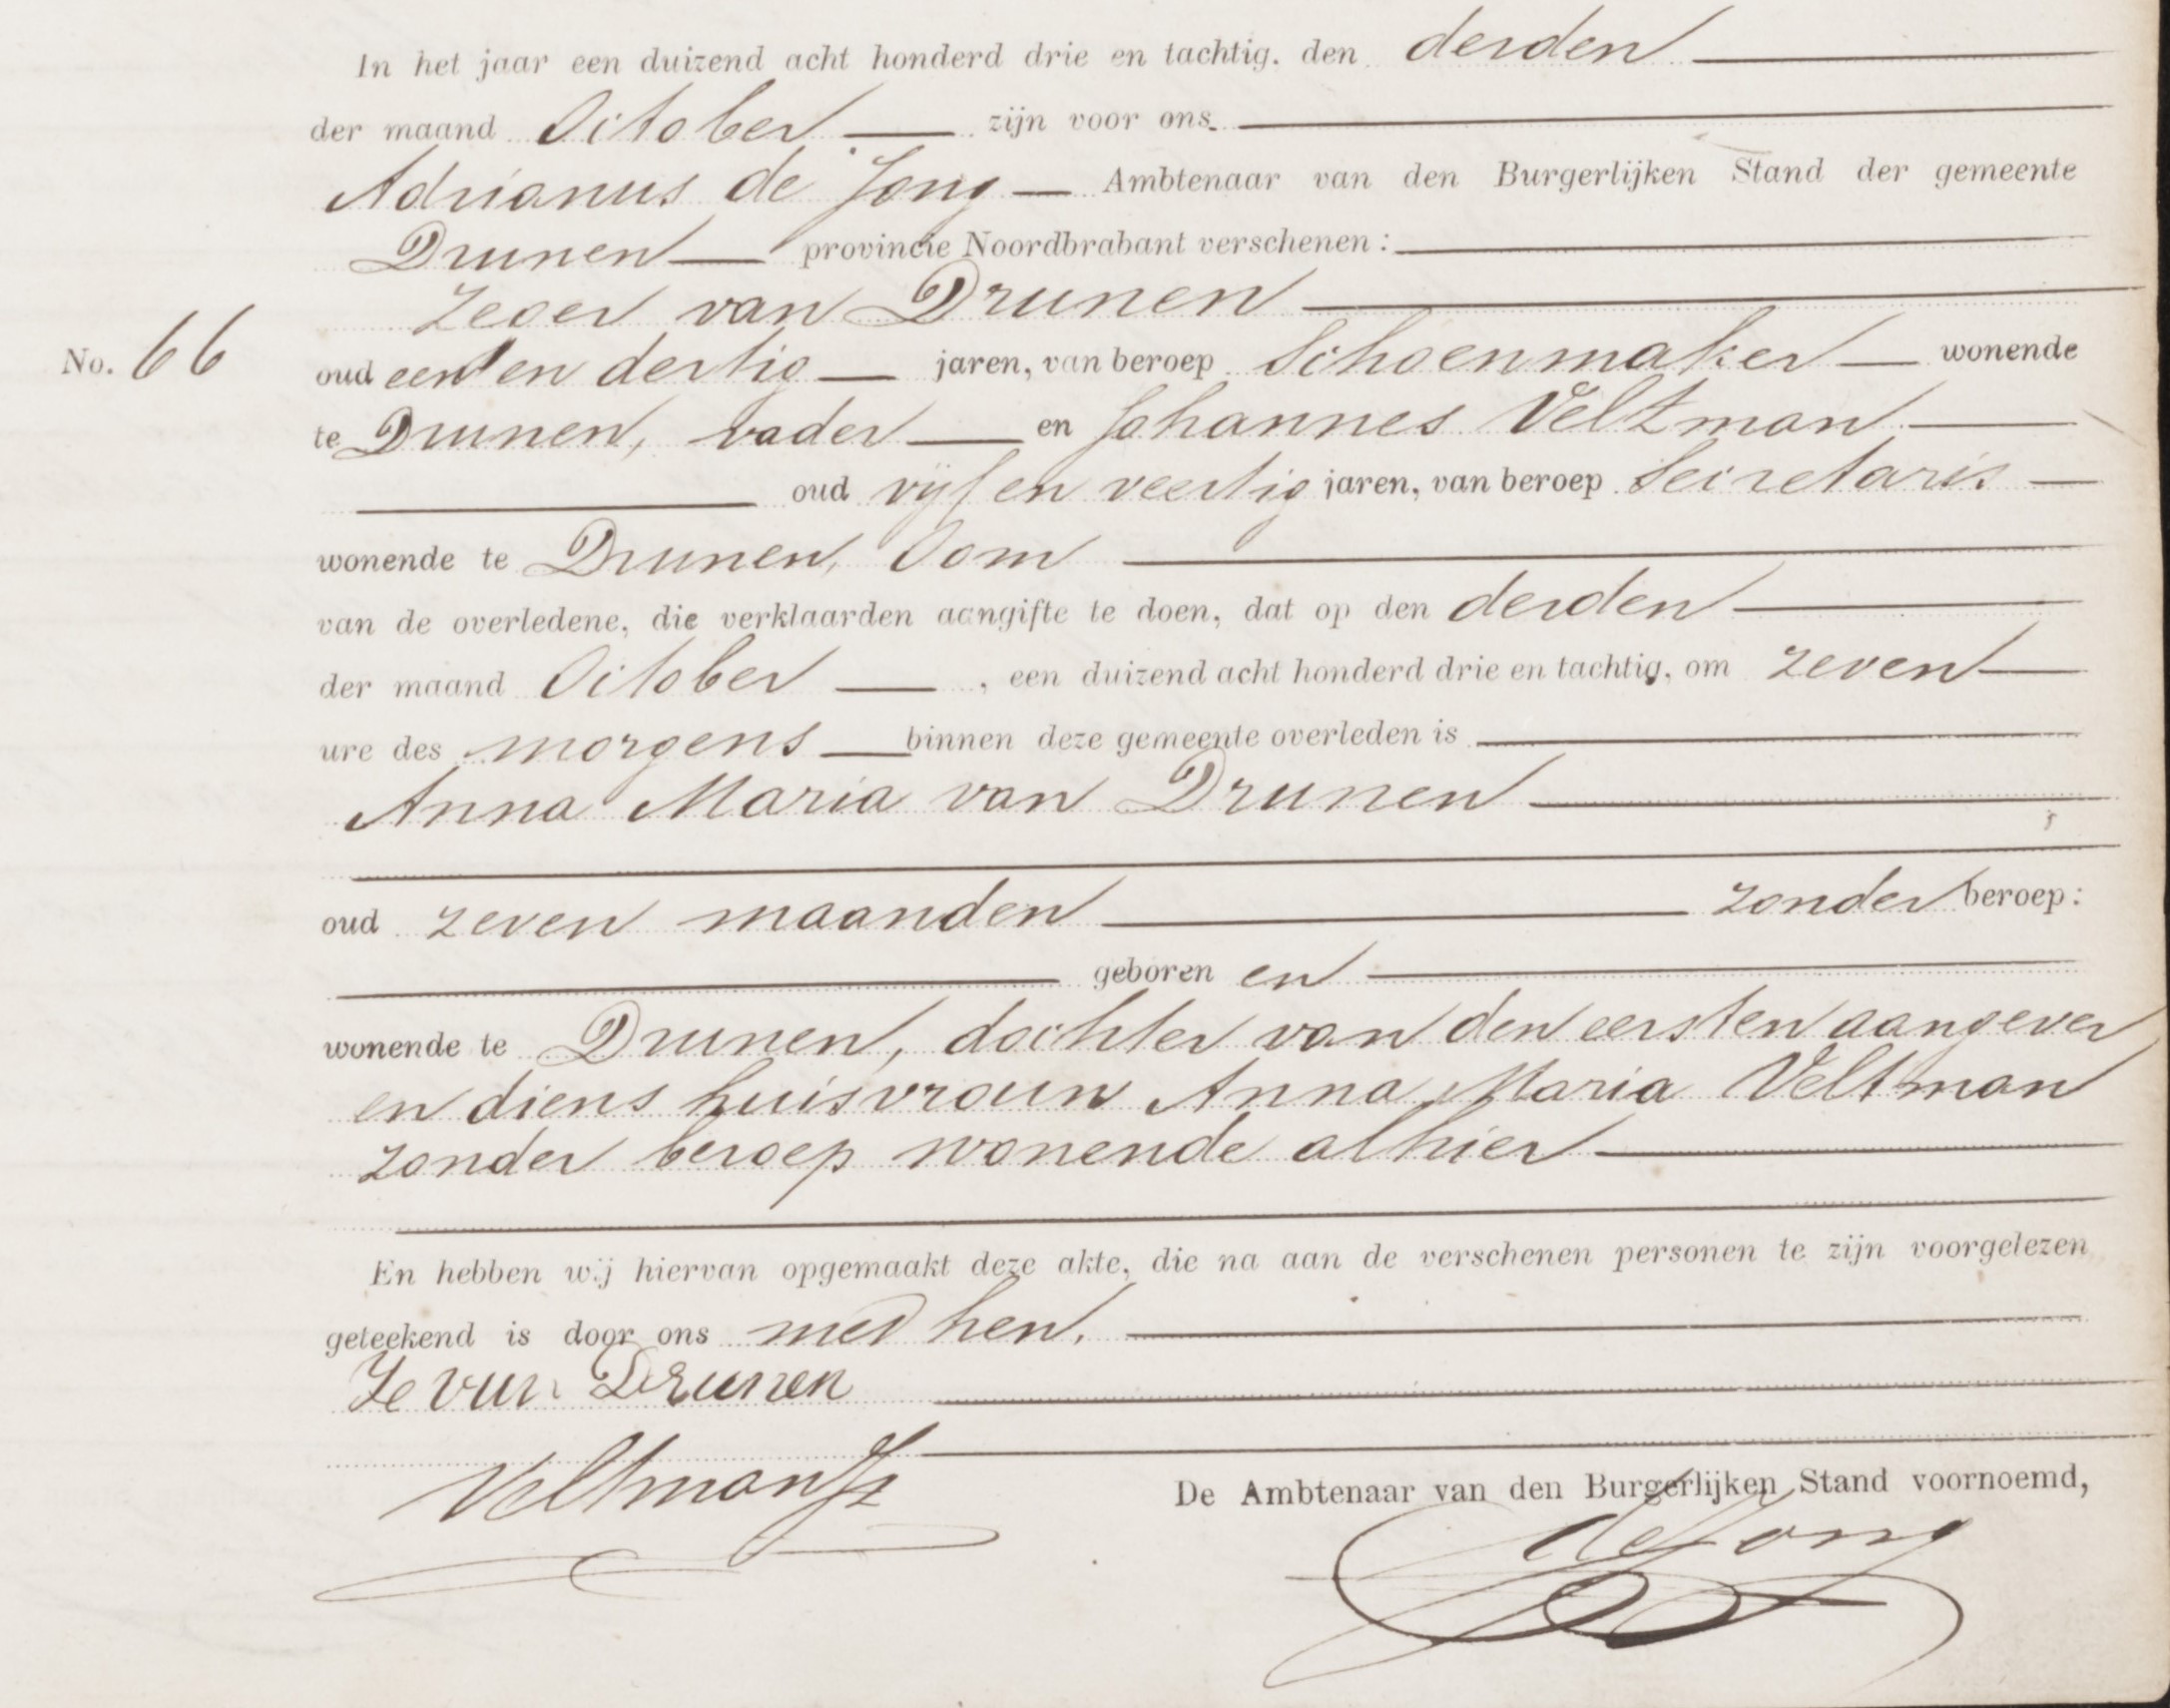 In het jaar een duizend acht honderd drie en tachtig, den derden
der maand October zijn voor ons
Adrianus de Jong Ambtenaar van den Burgerlijken Stand der gemeente
Drunen provincie Noordbrabant verschenen:
Zeger van Drunen
No. 66 oud een en dertig jaren, van beroep Schoenmaker wonende
te Drunen, vader en Johannes Veltman
oud vijf en veertig jaren, van beroep Secretaris
wonende te Drunen, Oom
van de overledene, die verklaarden aangifte te doen, dat op den derden
der maand October, een duizend acht honderd drie en tachtig, om zeven
ure des morgens binnen deze gemeente overleden is
Anna Maria van Drunen
oud zeven maanden zonder beroep:
geboren en
wonende te Drunen, dochter van den eersten aangever
en diens huisvrouw Anna Maria Veltman
zonder beroep wonende alhier
En hebben wij hiervan opgemaakt deze akte, die na aan de verschenen personen te zijn voorgelezen
geteekend is door ons met hen.
Ze van Drunen
Veltman
De Ambtenaar van den Burgerlijken Stand voornoemd,
de Jong